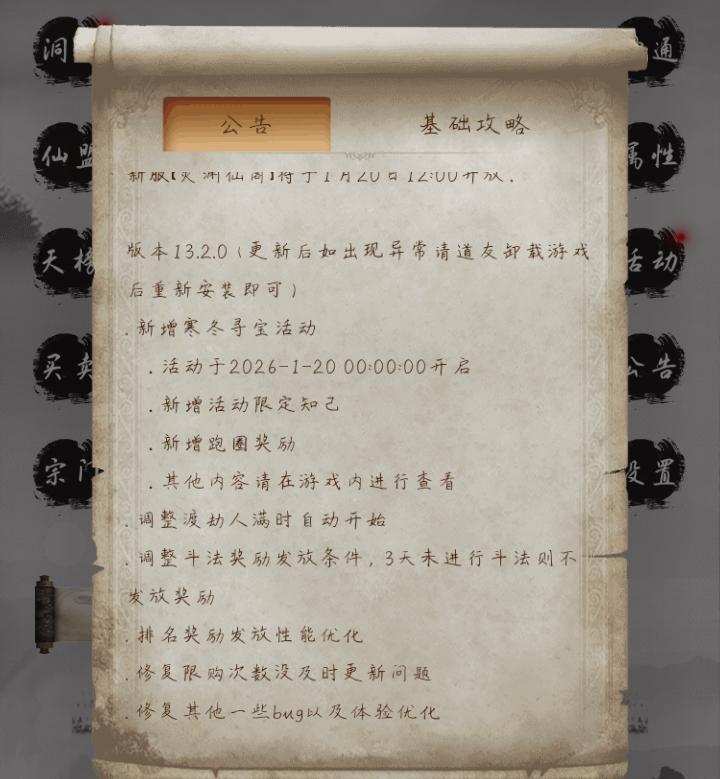 洞
通
仙盟
属性
天
活动
买卖
公告
宗门
设置
公告
基础攻略
新服【灵渊仙阁】将于1月20日12:00开放.
版本13.2.0(更新后如出现异常请道友卸载游戏
后重新安装即可)
.新增寒冬寻宝活动
.活动于2026-1-20 00:00:00开启
.新增活动限定知己
.新增跑圈奖励
.其他内容请在游戏内进行查看
.调整渡劫人满时自动开始
.调整斗法奖励发放条件,3天未进行斗法则不
发放奖励
.排名奖励发放性能优化
.修复限购次数没及时更新问题
.修复其他一些bug以及体验优化